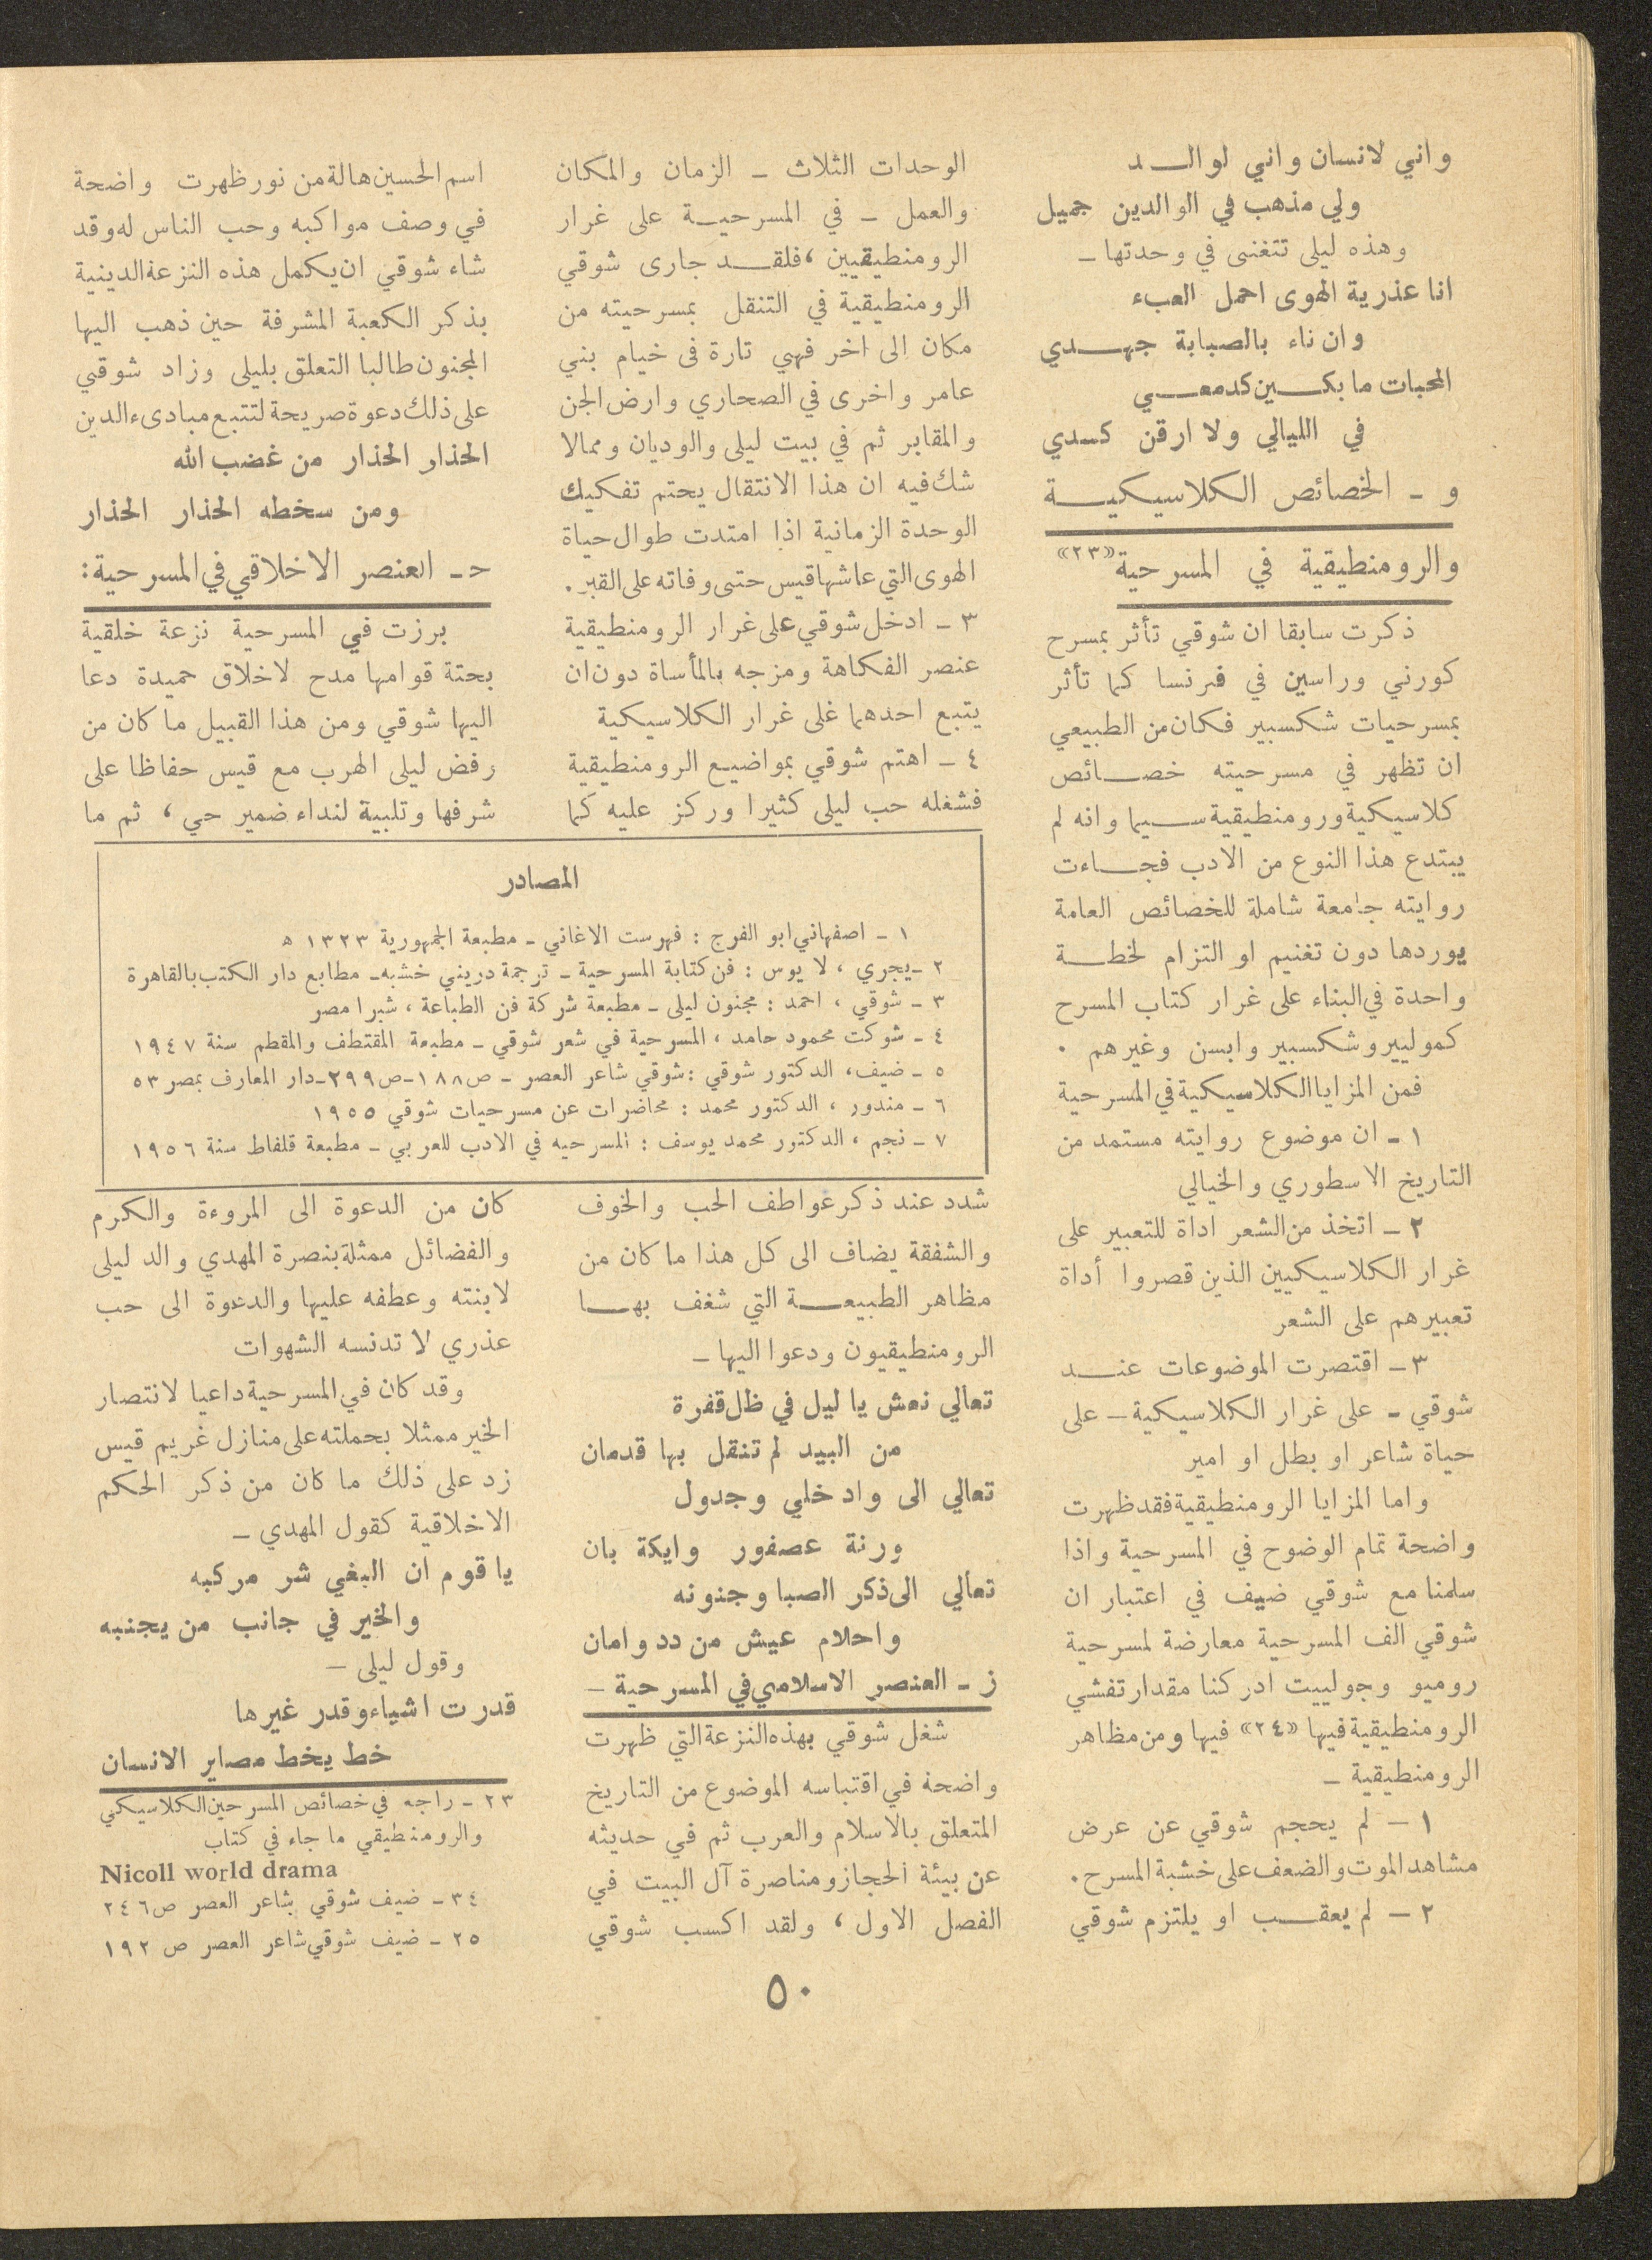 واني لانسان واني لوالـــد
ولي مذهب في الوالدين جميل
وهذه ليلى تتغنى في وحدتها ـ
انا عذرية الهوى احمل العبء
وان ناء بالصبابة جهـــدي
المحبات ما بكـــين كدمعـــي
في الليالي ولا ارقن كسدي
و ـ الخصائص الكلاسيكيـــة
والرومنطيقية في المسرحية «٢٣»
ذكرت سابقا ان شوقي تأثر بمسرح
كورني وراسين في فرنسا كما تأثر
بمسرحيات شكسبير فكان من الطبيعي
ان تظهر في مسرحيته خصـــائص
كلاسيكية ورومنطيقية ســـيما وانه لم
يبتدع هذا النوع من الادب فجـــاءت
روايته جامعة شاملة للخصائص العامة
يوردها دون تغنيم او التزام لخطـــة
واحدة في البناء على غرار كتاب المسرح
كموليير وشكسبير وابسن وغيرهم .
فمن المزايا الكلاسيكية في المسرحية
١ ـ ان موضوع روايته مستمد من
التاريخ الاسطوري والخيالي
٢ ـ اتخذ من الشعر اداة للتعبير على
غرار الكلاسيكيين الذين قصروا أداة
تعبيرهم على الشعر
٣ ـ اقتصرت الموضوعات عنـــد
شوقي ـ على غرار الكلاسيكية ـ على
حياة شاعر او بطل او امير
واما المزايا الرومنطيقية فقد ظهرت
واضحة تمام الوضوح في المسرحية واذا
سلمنا مع شوقي ضيف في اعتبار ان
شوقي الف المسرحية معارضة لمسرحية
روميو وجولييت ادركنا مقدار تفشي
الرومنطيقية فيها «٢٤» فيها ومن مظاهر
الرومنطيقية ـ
١ ـ لم يحجم شوقي عن عرض
مشاهد الموت والضعف على خشبة المسرح .
٢ ـ لم يعقـــب او يلتزم شوقي
الوحدات الثلاث ـ الزمان والمكان
والعمل ـ في المسرحيـة على غرار
الرومنطيقيين ، فلقـــد جارى شوقي
الرومنطيقية في التنقل بمسرحيته من
مكان الى اخر فهي تارة في خيام بني
عامر واخرى في الصحاري وارض الجن
والمقابر ثم في بيت ليلى والوديان ومما لا
شك فيه ان هذا الانتقال يحتم تفكيك
الوحدة الزمانية اذا امتدت طوال حياة
الهوى التي عاشها قيس حتى وفاته على القبر .
٣ ـ ادخل شوقي على غرار الرومنطيقية
عنصر الفكاهة ومزجه بالمأساة دون ان
يتبع احدهما غلى غرار الكلاسيكية
٤ ـ اهتم شوقي بمواضيع الرومنطيقية
فشغله حب ليلى كثيرا وركز عليه كما
شدد عند ذكر عواطف الحب والخوف
والشفقة يضاف الى كل هذا ما كان من
مظاهر الطبيعـــة التي شغف بهـــا
الرومنطيقيون ودعوا اليها ـ
تعالي نعش يا ليل في ظل قفرة
من البيد لم تنقل بها قدمان
تعالي الى واد خلي وجدول
ورنة عصفور وايكة بان
تعالي الى ذكر الصبا وجنونه
واحلام عيش من دد وامان
ز ـ العنصر الاسلامي في المسرحية ـ
شغل شوقي بهذه النزعة التي ظهرت
واضحة في اقتباسه الموضوع من التاريخ
المتعلق بالاسلام والعرب ثم في حديثه
عن بيئة الحجاز ومناصرة آل البيت في
الفصل الاول ، ولقد اكسب شوقي
اسم الحسين هالة من نور ظهرت واضحة
في وصف مواكبه وحب الناس له وقد
شاء شوقي ان يكمل هذه النزعة الدينية
بذكر الكعبة المشرفة حين ذهب اليها
المجنون طالبا التعلق بليلى وزاد شوقي
على ذلك دعوة صريحة لتتبع مبادىء الدين
الحذار الحذار من غضب الله
ومن سخطه الحذار الحذار
حـ ـ العنصر الاخلاقي في المسرحية :
برزت في المسرحية نزعة خلقية
بحتة قوامها مدح لاخلاق حميدة دعا
اليها شوقي ومن هذا القبيل ما كان من
رفض ليلى الهرب مع قيس حفاظا على
شرفها وتلبية لنداء ضمير حي ، ثم ما
كان من الدعوة الى المروءة والكرم
والفضائل ممثلة بنصرة المهدي والد ليلى
لابنته وعطفه عليها والدعوة الى حب
عذري لا تدنسه الشهوات
وقد كان في المسرحية داعيا لانتصار
الخير ممثلا بحملته على منازل غريم قيس
زد على ذلك ما كان من ذكر الحكم
الاخلاقية كقول المهدي ـ
يا قوم ان البغي شر مركبه
والخير في جانب من يجنبه
وقول ليلى ـ
قدرت اشياء وقدر غيرها
خط يخط مصاير الانسان
المصادر
١ ـ اصفهاني ابو الفرج : فهرست الاغاني ـ مطبعة الجمهورية ١٣٢٣ ه
٢ ـ يجري ، لا يوس : فن كتابة المسرحية ـ ترجمة دريني خشبه ـ مطابع دار الكتب بالقاهرة
٣ ـ شوقي ، احمد : مجنون ليلى ـ مطبعة شركة فن الطباعة ، شبرا مصر
٤ ـ شوكت محمود حامد ، المسرحية في شعر شوقي ـ مطبعة المقتطف والمقطم سنة ١٩٤٧
٥ ـ ضيف ، الدكتور شوقي : شوقي شاعر العصر ـ ص ١٨٨ ـ ص ٢٩٩ ـ دار المعارف بمصر ٥٣
٦ ـ مندور ، الدكتور محمد : محاضرات عن مسرحيات شوقي ١٩٥٥
٧ ـ نجم ، الدكتور محمد يوسف : المسرحيه في الادب للعربي ـ مطبعة قلفاط سنة ١٩٥٦
٢٣ ـ راجه في خصائص المسرحين الكلاسيكي
والرومنطيقي ما جاء في كتاب
Nicoll world drama
٣٤ ـ ضيف شوقي شاعر العصر ص ٢٤٦
٢٥ ـ ضيف شوقي شاعر العصر ص ١٩٢
٥٠